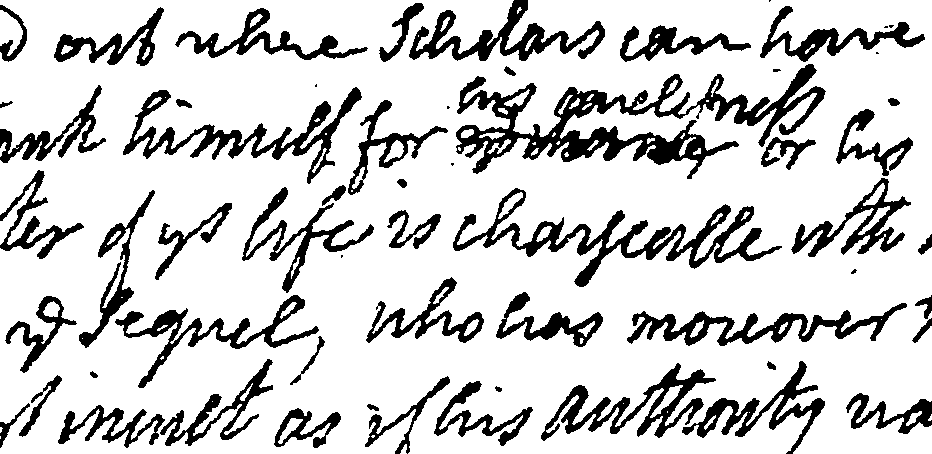 out where Scholars can have
himself for his carelesness or his
ter of ys life is chargeable wth
ye Sequel, who has moreover
as if his authority